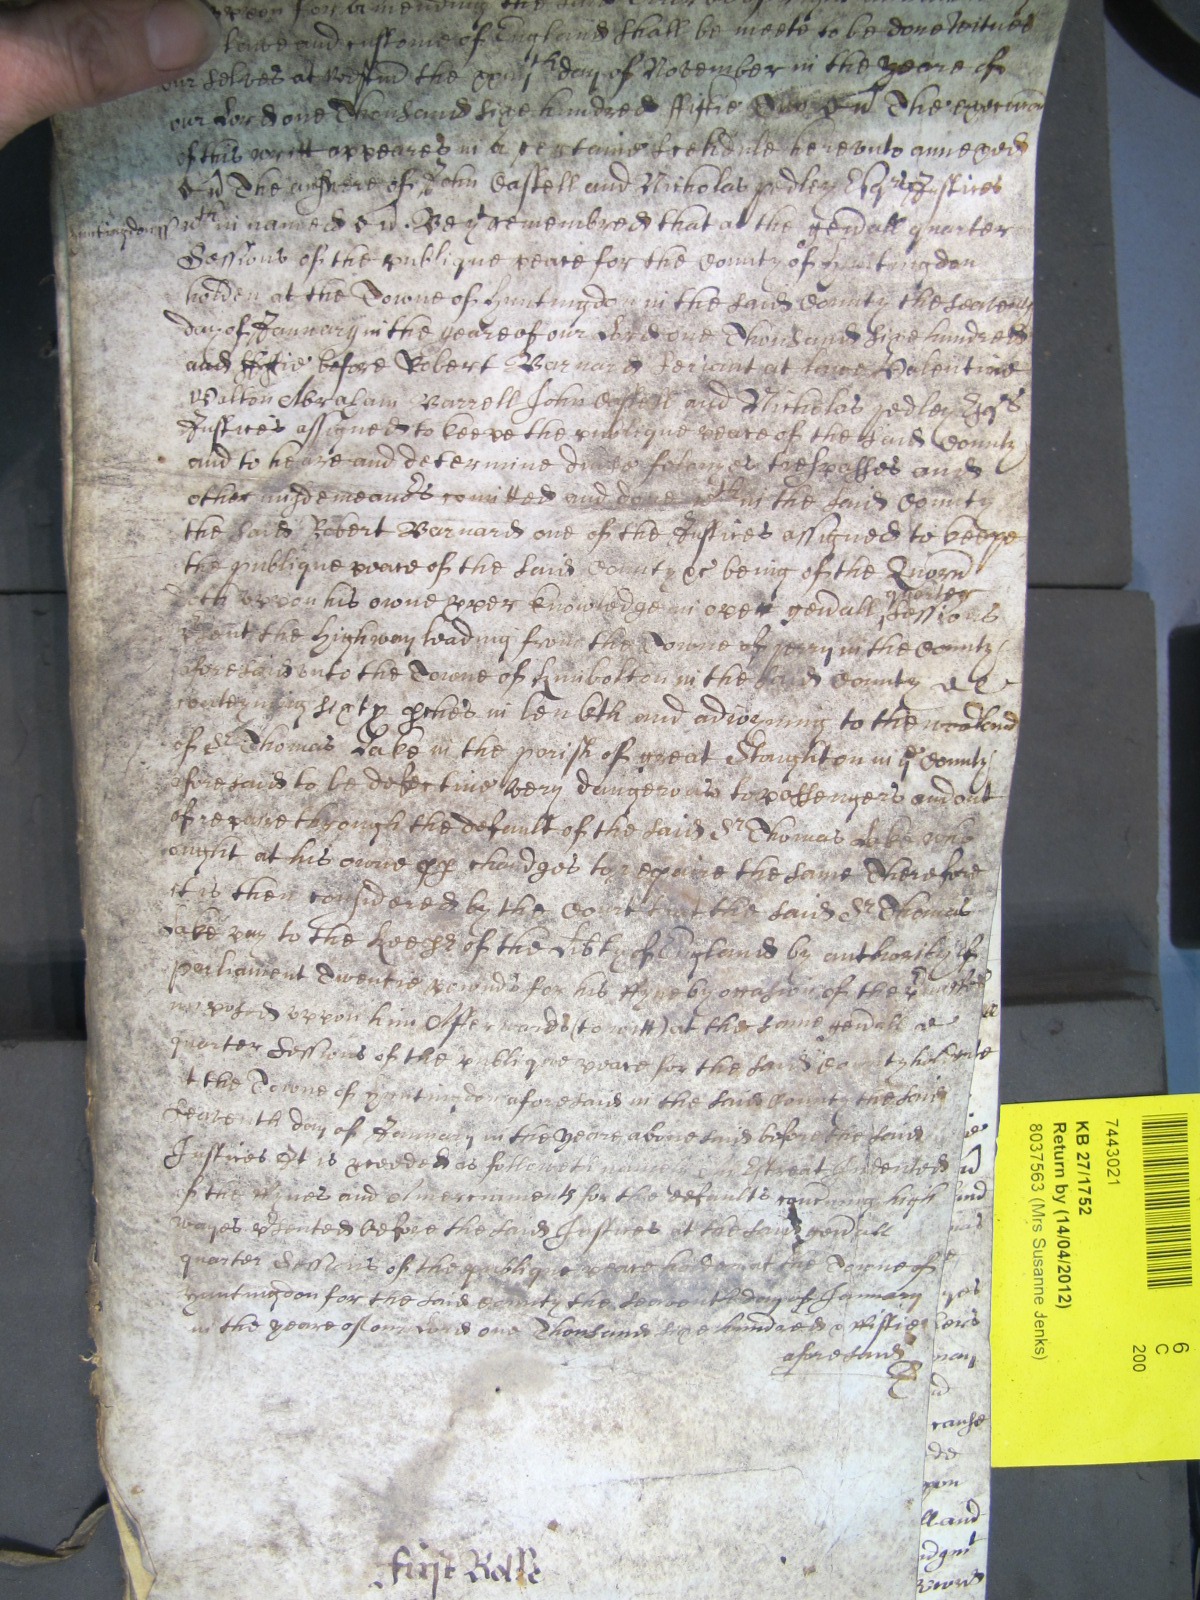 upon for amending the said
lawe and custome of England shall be meete to be done Witnes
our selves at Westm the xxviijth day of November in the yeare of
our Lord one Thousand sixe hundred fiftie Two The execucion
of this writt appeares in a certaine scedule hereunto annexed
The answere of John Castell and Nicholas Pedley Esqrs Justices
within named
Be it remembred that at the genall quarter
Sessions of the publique peace for the County of Huntingdon
holden at the Towne of Huntingdon in the said County the seaventh
day of January in the yeare of our Lord one Thousand sixe hundred
and fiftie before Robert Barnard Seriant at lawe Valentine
Walton Abraham Burrell John Castell and Nicholas Pedley Esqrs
Justices assigned to keepe the publique peace of the said County
and to heare and determine divers felonyes trespasses and
other misdemeanors comitted and done in the said County
the said Robert Barnard one of the Justices assigned to keepe
the publique peace of the said County &c being of the Quorum
doth uppon his owne pper knowledge in open genall quarter Sessions
psent the highway leading from the Towne of Perry in the County
aforesaid unto the Towne of Kimbolton in the said County
conteyning sixty pches in length and adioyning to the
of Sr Thomas Lake in the parish of great Staughton in ye County
aforesaid to be defective very dangerous to passengers and out
of repaire through the default of the said Sr Thomas Lake who
ought at his owne pp chardges to repaire the same Therefore
it is then considered by the Court that the said Sr Thomas
Lake pay to the Keeps of the libty of England by authority of
parliament Twentie pounds for his fyne by occasion of the pmisses
imposed uppon him Afterwards (to witt) at the same genall
quarter Sessions of the publique peace for the said County holden
at the Towne of Huntingdon aforesaid in the said County the said
seaventh day of January in the yeare abovesaid before the said
Justices It is pceeded as followeth namely Estreat Indented
of the fynes and Amerciaments for the defaults concning high
wayes psented before the said Justices at the said genall
quarter Sessions of the publique peace holden at the Towne of
Huntingdon for the said County the seaventh day of January
in the yeare of our Lord one Thousand sixe hundred & fiftie
aforesaid
first Rolle
cause
pon
ll and
7443021
KB 27/1752
Return by (14/04/2012)
8037563 (Mrs Susanne Jenks)
6
C
200